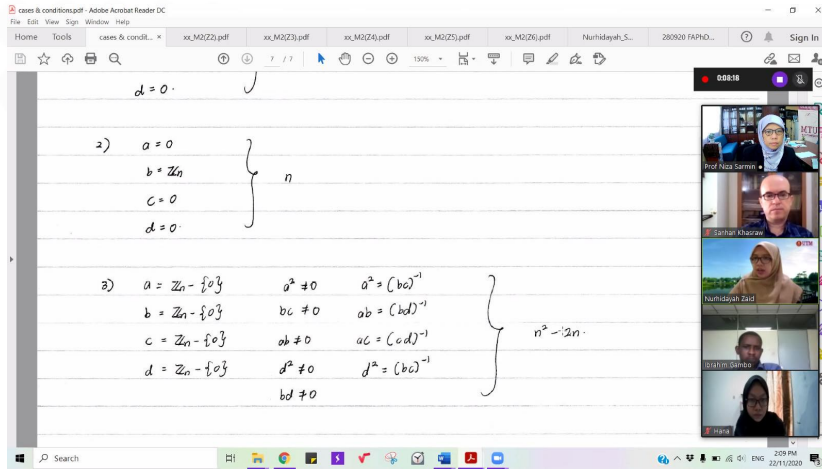 cases & conditions.pdf - Adobe Acrobat Reader DC
File Edit View Sign Window Help
Home Tools cases & condit... × xx_M2(Z2).pdf xx_M2(Z3).pdf xx_M2(Z4).pdf xx_M2(Z5).pdf xx_M2(Z6).pdf Nurhidayah_S... 280920 FAPhD... Sign In
7 / 7 150%
0:08:18
d = 0.
2) a = 0
b = ℤn
n
c = 0
d = 0.
3) a = ℤn - {0} a² ≠ 0 a² = (bc)⁻¹
b = ℤn - {0} bc ≠ 0 ab = (bd)⁻¹
n² - 2n.
c = ℤn - {0} ab ≠ 0 ac = (cd)⁻¹
d = ℤn - {0} d² ≠ 0 d² = (bc)⁻¹
bd ≠ 0
MTU
Prof Niza Sarmin
Sanhan Khasraw
UTM
Nurhidayah Zaid
Ibrahim Gambo
Hana
Search
ENG
2:09 PM
22/11/2020
3